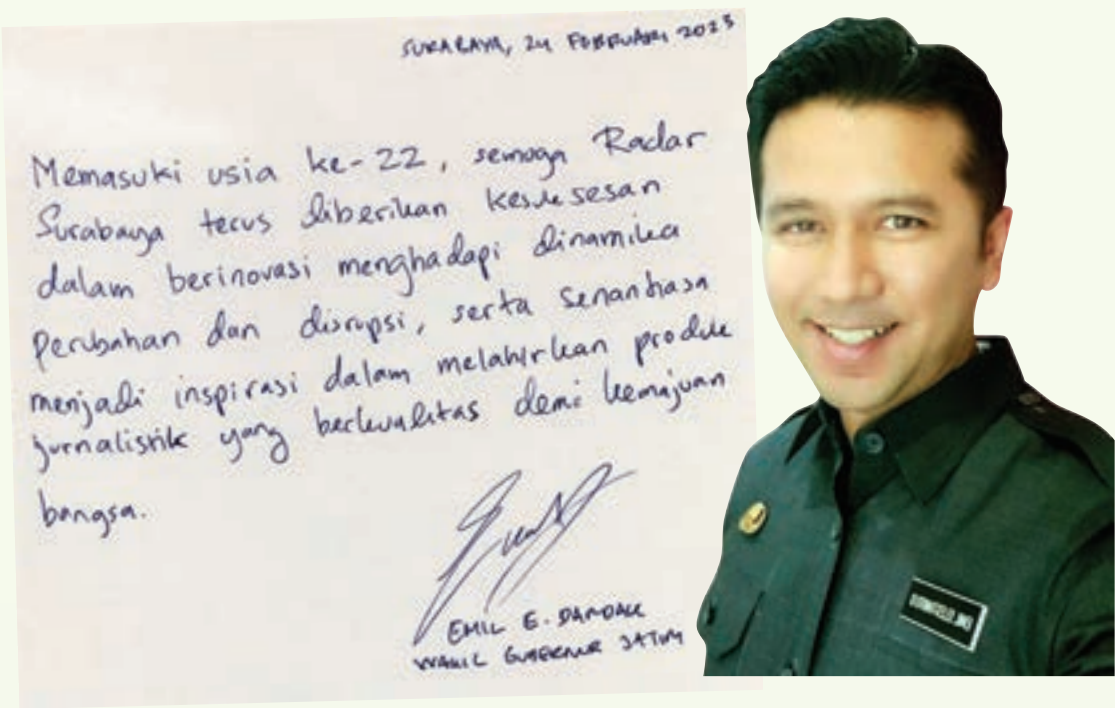 SURABAYA, 24 FEBRUARI 2023
Memasuki usia ke-22, semoga Radar
Surabaya terus diberikan kesuksesan
dalam berinovasi menghadapi dinamika
perubahan dan disrupsi, serta senantiasa
menjadi inspirasi dalam melahirkan produk
jurnalistik yang berkualitas demi kemajuan
bangsa.
EMIL E. DARDAK
WAKIL GUBERNUR JATIM